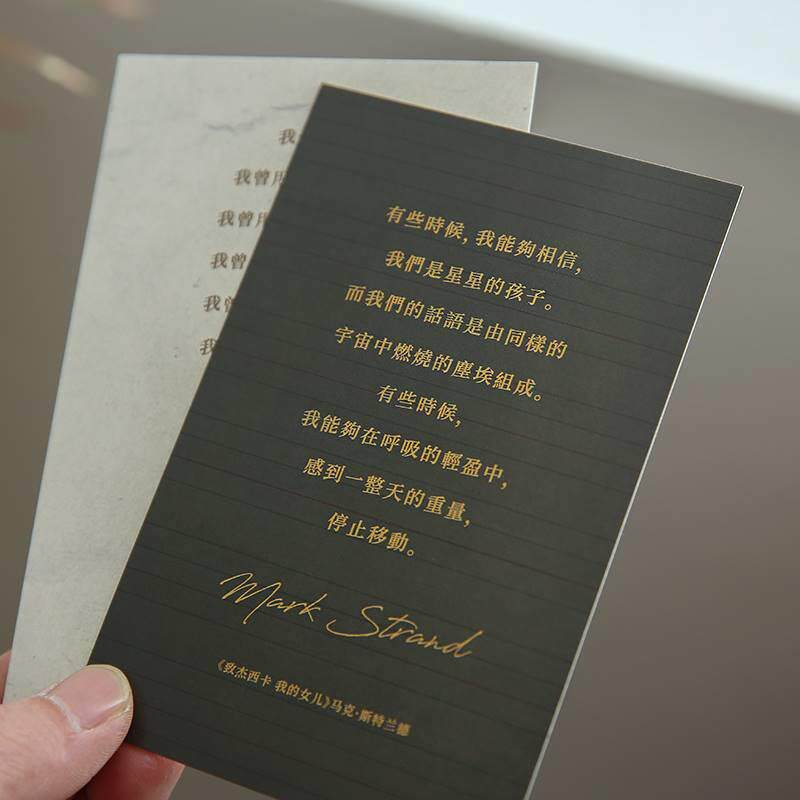 我
我曾用
我曾用
我曾
我曾
我
有些時候，我能夠相信，
我們是星星的孩子。
而我們的話語是由同樣的
宇宙中燃燒的塵埃組成。
有些時候，
我能夠在呼吸的輕盈中，
感到一整天的重量，
停止移動。
Mark Strand
《致杰西卡 我的女儿》马克·斯特兰德